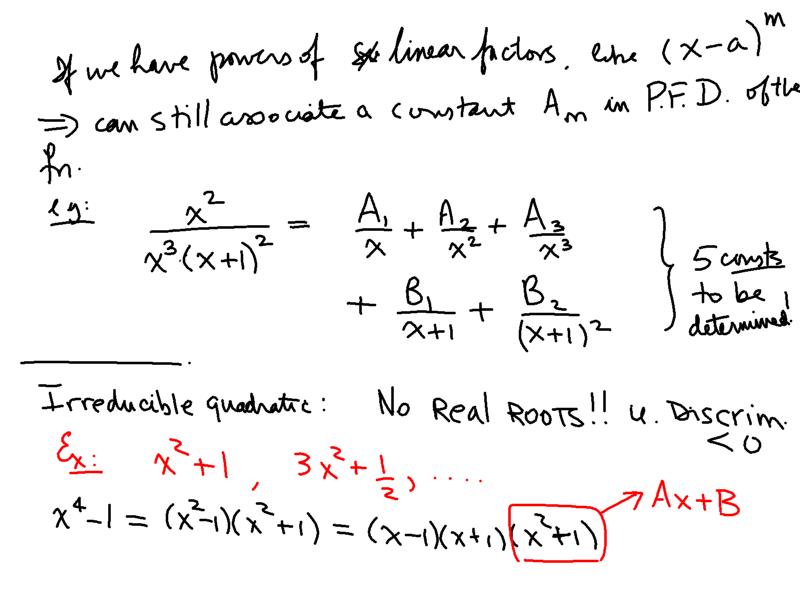 If we have powers of linear factors, like (x-a)^m
⇒ can still associate a constant A_m in P.F.D. of the
fn.
eg: x^2/(x^3·(x+1)^2) = A_1/x + A_2/x^2 + A_3/x^3
+ B_1/(x+1) + B_2/(x+1)^2
} 5 consts
to be
determined!
Irreducible quadratic: No Real ROOTS!! ie. Discrim.
< 0
Ex: x^2+1, 3x^2+1/2, ....
x^4-1 = (x^2-1)(x^2+1) = (x-1)(x+1)(x^2+1) → Ax+B